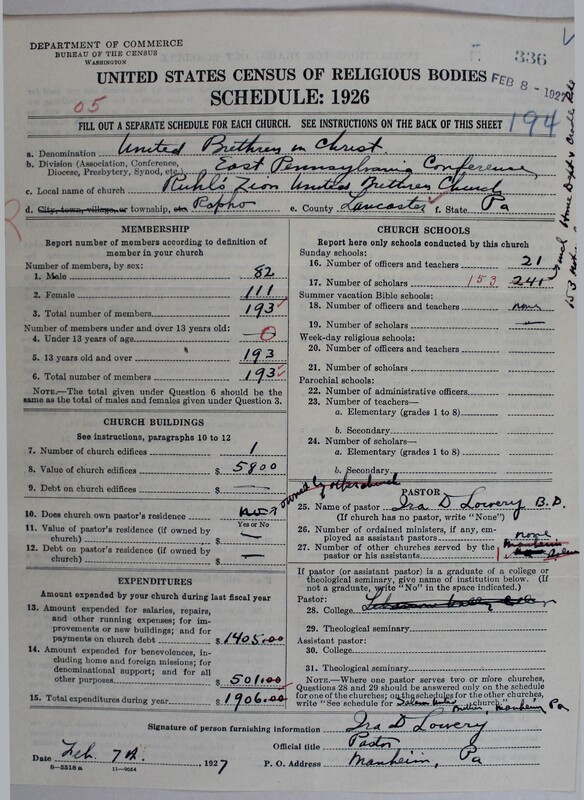 DEPARTMENT OF COMMERCE
BUREAU OF THE CENSUS
WASHINGTON
336
UNITED STATES CENSUS OF RELIGIOUS BODIES
FEB 8 - 1927
SCHEDULE: 1926
05
FILL OUT A SEPARATE SCHEDULE FOR EACH CHURCH. SEE INSTRUCTIONS ON THE BACK OF THIS SHEET
194
a. Denomination United Brethren in Christ
b. Division (Association, Conference, Diocese, Presbytery, Synod, etc.) East Pennsylvania Conference
c. Local name of church Ruhl's Zion United Brethren Church
d. City, town, village, or township, etc. Rapho e. County Lancaster f. State Pa
MEMBERSHIP
Report number of members according to definition of member in your church
Number of members, by sex:
1. Male 82
2. Female 111
3. Total number of members 193
Number of members under and over 13 years old:
4. Under 13 years of age 0
5. 13 years old and over 193
6. Total number of members 193
NOTE.—The total given under Question 6 should be the same as the total of males and females given under Question 3.
CHURCH BUILDINGS
See instructions, paragraphs 10 to 12
7. Number of church edifices 1
8. Value of church edifices $ 5800
9. Debt on church edifices $ —
10. Does church own pastor's residence
Yes or No
owned by
11. Value of pastor's residence (if owned by church) $ —
12. Debt on pastor's residence (if owned by church) $ —
EXPENDITURES
Amount expended by your church during last fiscal year
13. Amount expended for salaries, repairs, and other running expenses; for improvements or new buildings; and for payments on church debt $ 1405.00
14. Amount expended for benevolences, including home and foreign missions; for denominational support; and for all other purposes $ 501.00
15. Total expenditures during year $ 1906.00
CHURCH SCHOOLS
Report here only schools conducted by this church
Sunday schools:
16. Number of officers and teachers 21
17. Number of scholars 153 241
Home Dept & Cradle Roll
153
Summer vacation Bible schools:
18. Number of officers and teachers none
19. Number of scholars —
Week-day religious schools:
20. Number of officers and teachers
21. Number of scholars
Parochial schools:
22. Number of administrative officers
23. Number of teachers—
a. Elementary (grades 1 to 8)
b. Secondary
24. Number of scholars—
a. Elementary (grades 1 to 8)
b. Secondary
PASTOR
25. Name of pastor Ira D Lowery B.D.
(If church has no pastor, write "None")
26. Number of ordained ministers, if any, employed as assistant pastors none
27. Number of other churches served by the pastor or his assistants 1 Manheim Salem
If pastor (or assistant pastor) is a graduate of a college or theological seminary, give name of institution below. (If not a graduate, write "No" in the space indicated.)
Pastor:
28. College
29. Theological seminary
Assistant pastor:
30. College
31. Theological seminary
NOTE.—Where one pastor serves two or more churches, Questions 28 and 29 should be answered only on the schedule for one of the churches; on the schedules for the other churches, write "See schedule for Salem United Brethren, Manheim, Pa church."
Signature of person furnishing information Ira D Lowery
Official title Pastor
Date Feb. 7th, 1927 P. O. Address Manheim, Pa
8—5518 a 11—9054